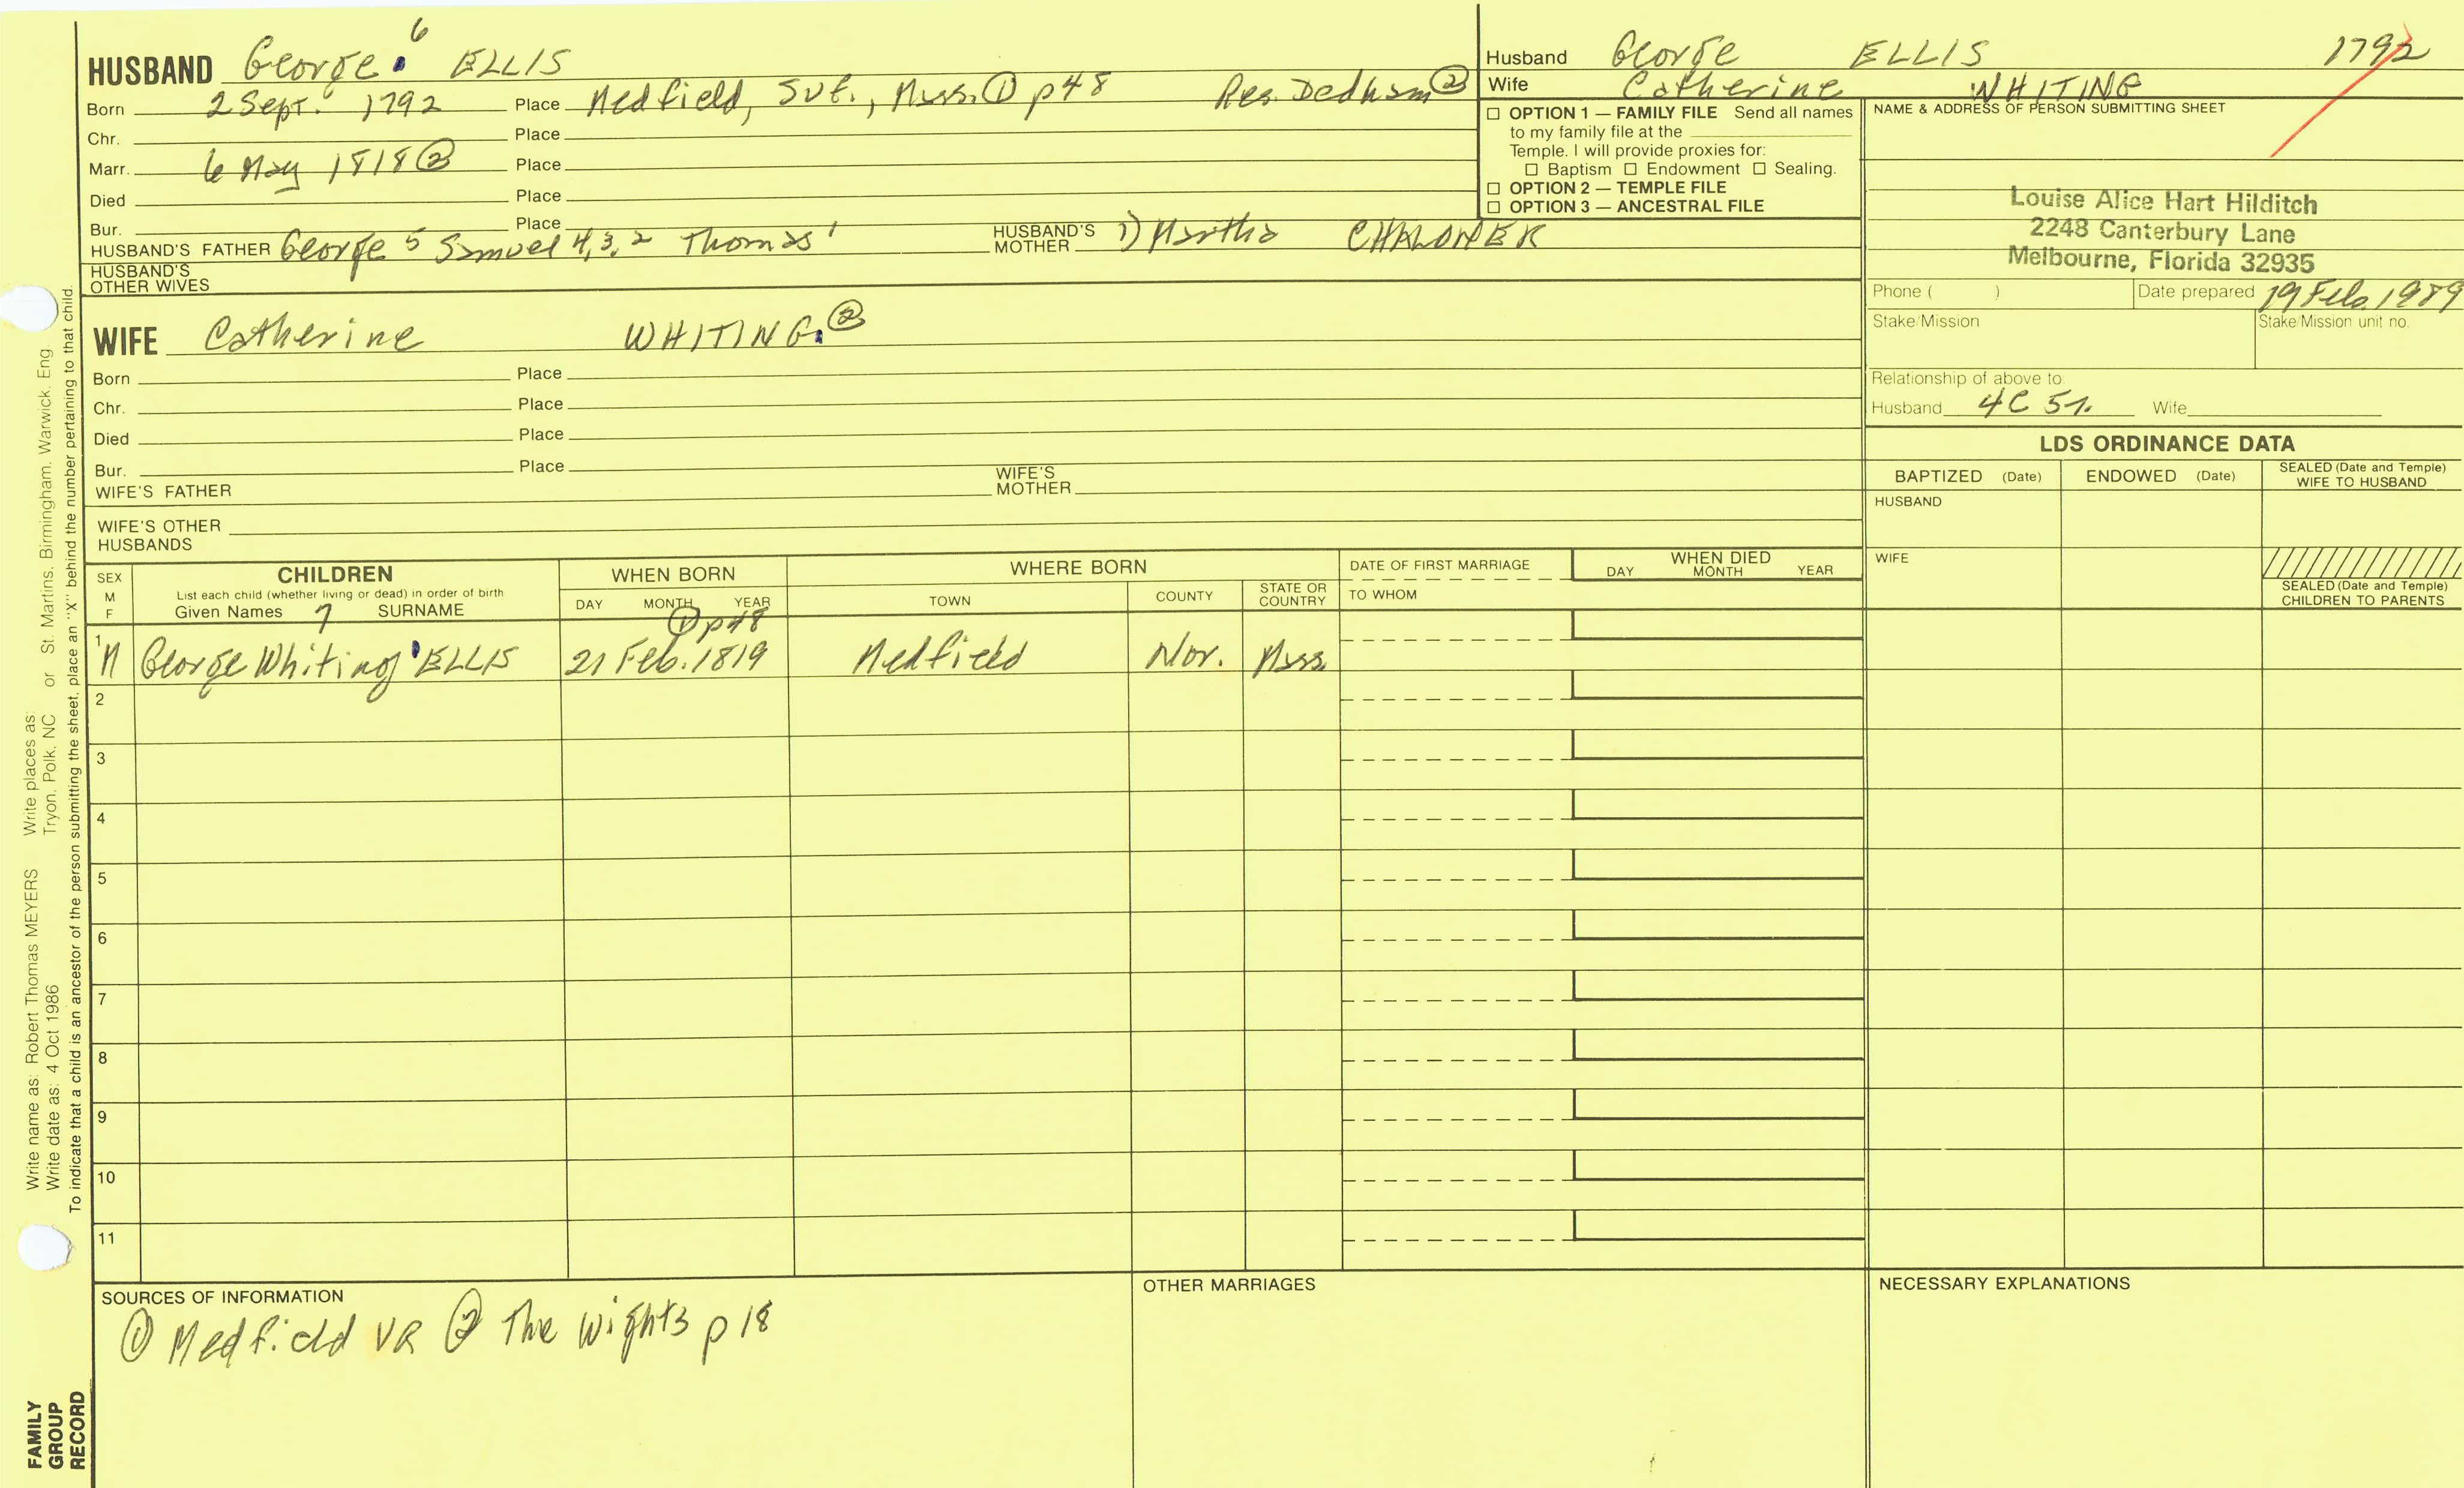 HUSBAND George 6 ELLIS
Born 2 Sept. 1792 Place Medfield, Suf., Mass. ① p48 Res. Dedham ②
Chr. Place
Marr. 6 May 1818 ② Place
Died Place
Bur. Place
HUSBAND'S FATHER George 5 Samuel 4,3,2 Thomas 1 HUSBAND'S MOTHER 1) Martha CHALONER
HUSBAND'S OTHER WIVES
Husband George ELLIS 1792
Wife Catherine WHITING
□ OPTION 1 — FAMILY FILE Send all names
to my family file at the
Temple. I will provide proxies for:
□ Baptism □ Endowment □ Sealing.
□ OPTION 2 — TEMPLE FILE
□ OPTION 3 — ANCESTRAL FILE
NAME & ADDRESS OF PERSON SUBMITTING SHEET
Louise Alice Hart Hilditch
2248 Canterbury Lane
Melbourne, Florida 32935
Phone ( ) Date prepared 19 Feb. 1989
Stake/Mission Stake/Mission unit no.
Relationship of above to:
Husband 4C 5r. Wife
WIFE Catherine WHITING. ②
Born Place
Chr. Place
Died Place
Bur. Place
WIFE'S FATHER WIFE'S MOTHER
WIFE'S OTHER HUSBANDS
LDS ORDINANCE DATA
BAPTIZED (Date) ENDOWED (Date) SEALED (Date and Temple) WIFE TO HUSBAND
HUSBAND
WIFE
SEALED (Date and Temple) CHILDREN TO PARENTS
SEX M F
CHILDREN
List each child (whether living or dead) in order of birth
Given Names 7 SURNAME
WHEN BORN
DAY MONTH YEAR
WHERE BORN
TOWN COUNTY STATE OR COUNTRY
DATE OF FIRST MARRIAGE
TO WHOM
WHEN DIED
DAY MONTH YEAR
① p48
1 M George Whiting ELLIS 21 Feb. 1819 Medfield Nor. Mass.
2
3
4
5
6
7
8
9
10
11
SOURCES OF INFORMATION
① Medfield VR ② The Wights p 18
OTHER MARRIAGES
NECESSARY EXPLANATIONS
FAMILY GROUP RECORD
Write name as: Robert Thomas MEYERS Write places as:
Write date as: 4 Oct 1986 Tryon, Polk, NC or St. Martins, Birmingham, Warwick, Eng.
To indicate that a child is an ancestor of the person submitting the sheet, place an "X" behind the number pertaining to that child.